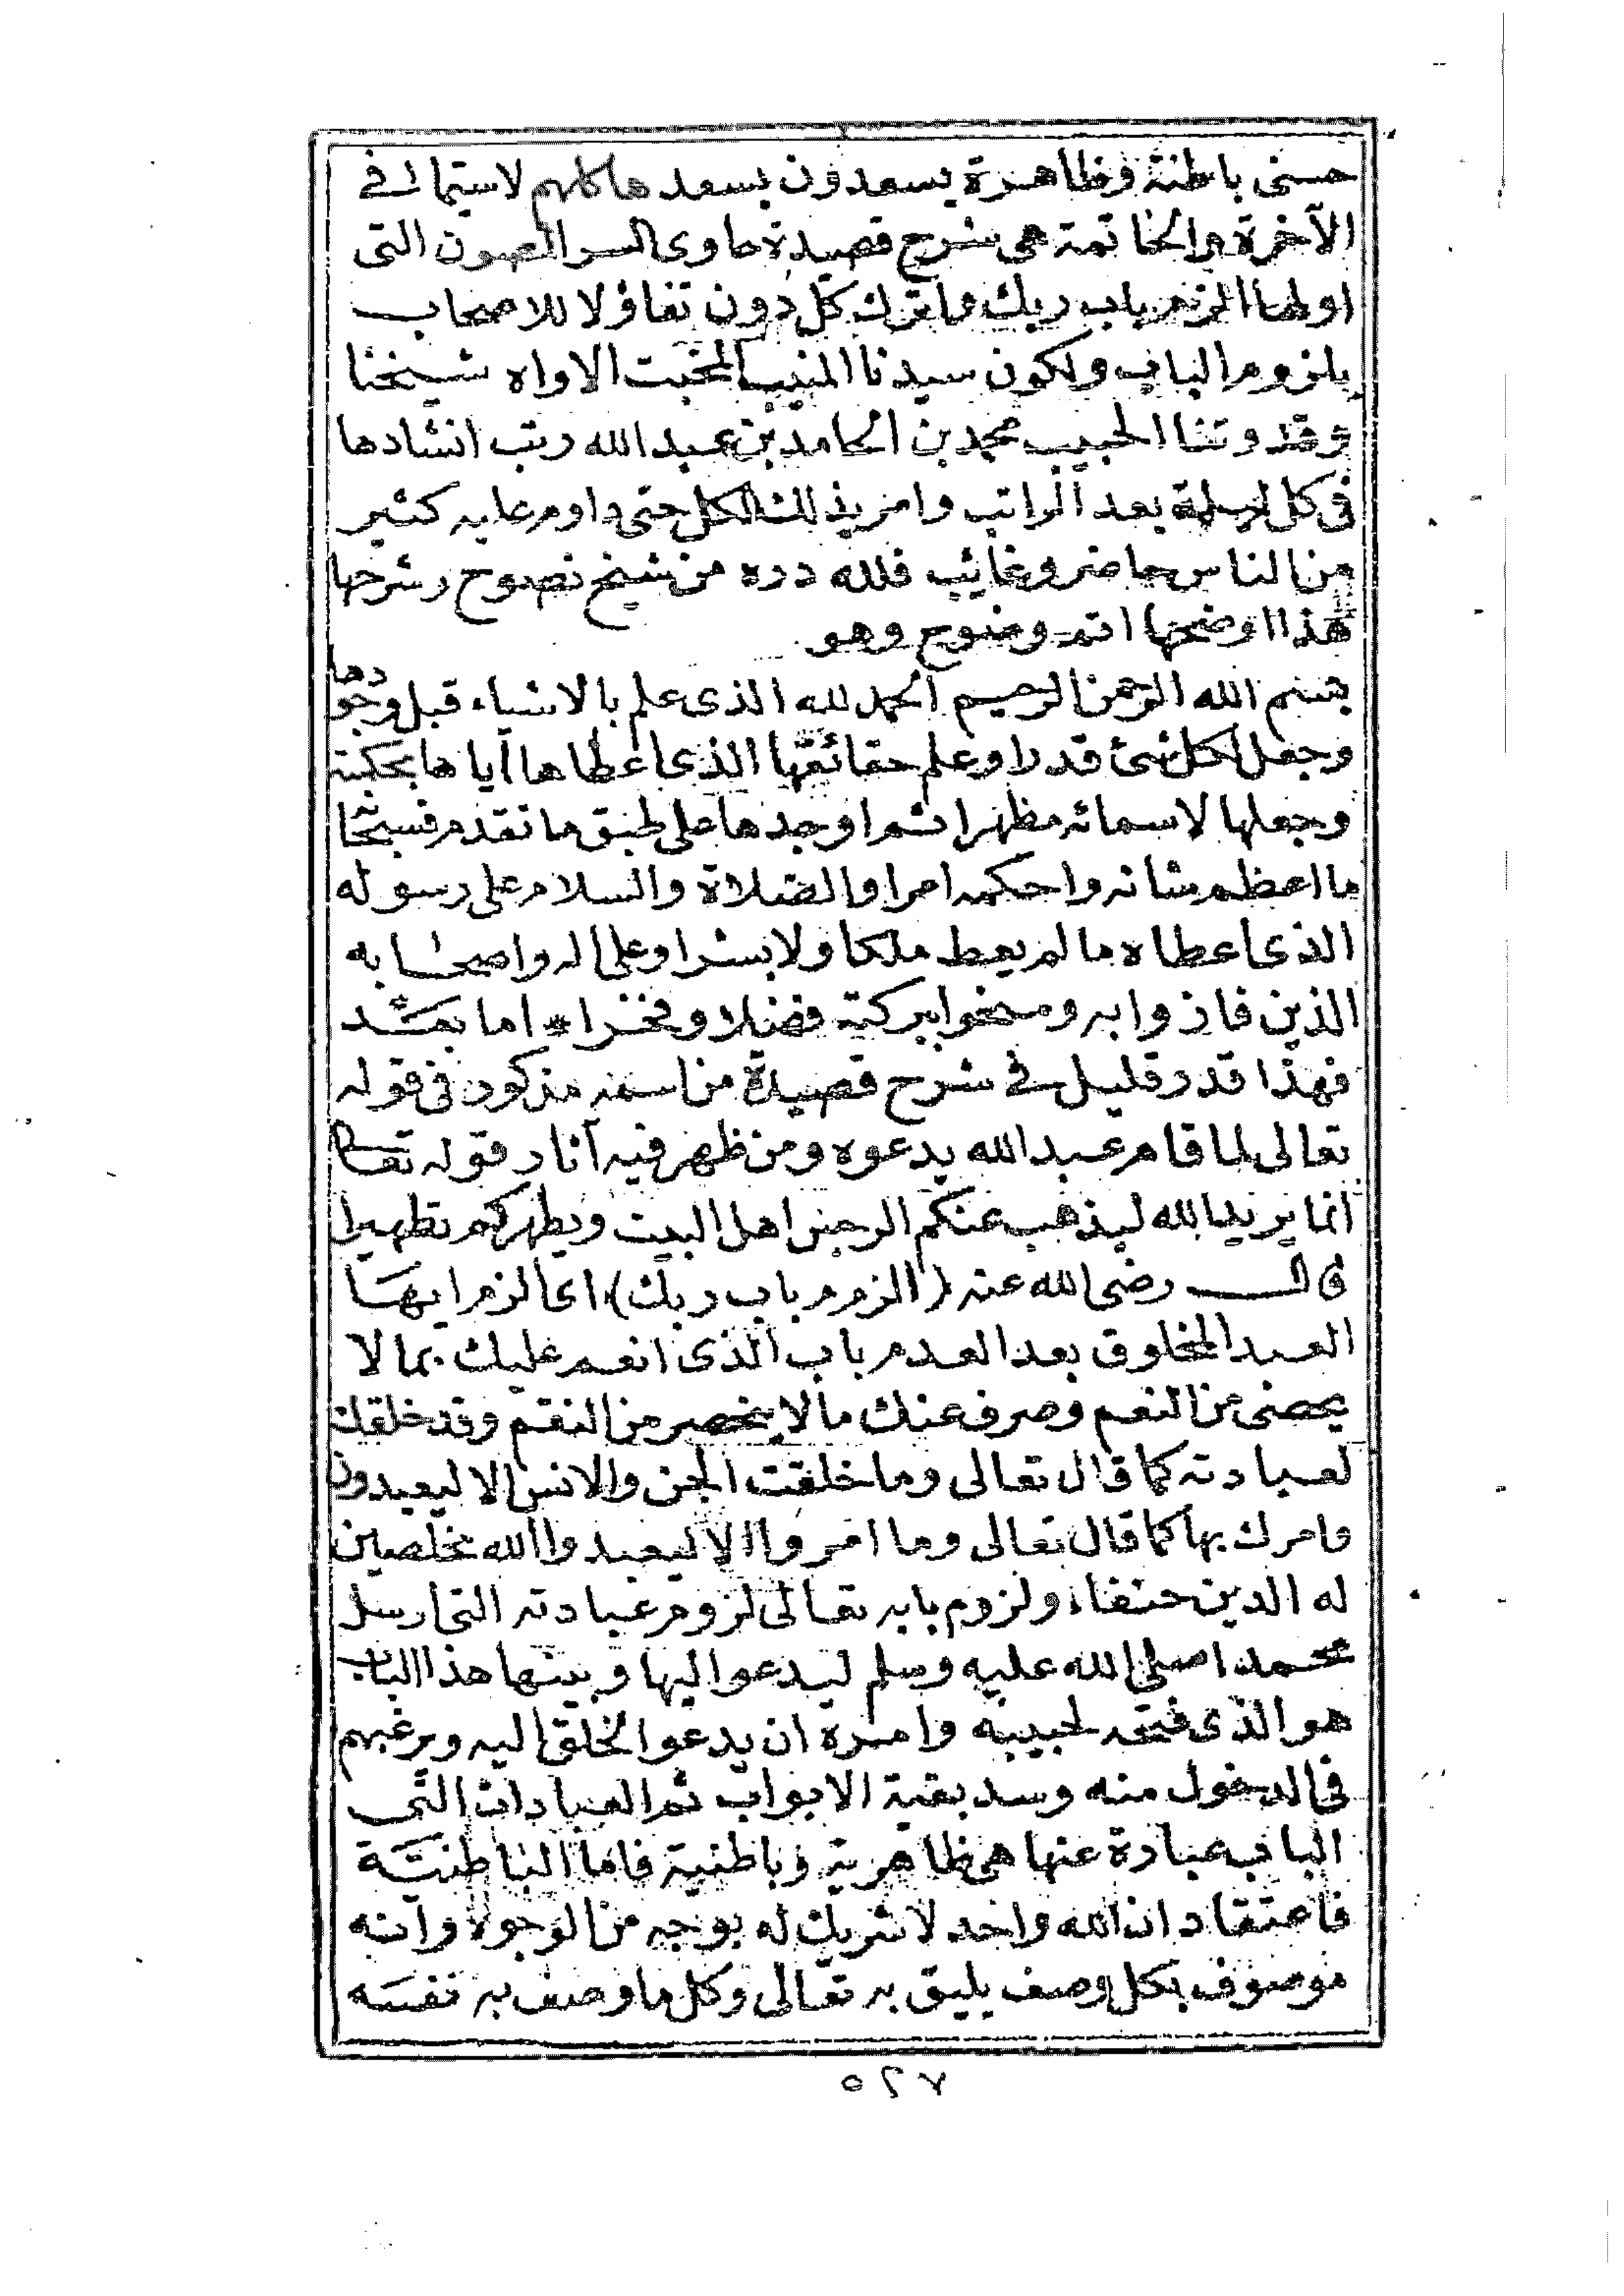 حسنى باطنة وظاهرة يسعدون بسعدها كلهم لاسيما في
الآخرة والخاتمة هي شرح قصيدة حاوى السر المصون التى
اولها الزم باب ربك واترك كل دون تفاؤلا للاصحاب
بلزوم الباب ولكون سيدنا المنيب المخبت الاواه شيخنا
وقدوتنا الحبيب محمد بن الحامد بن عبدالله رتب انشادها
فى كل ليلة بعد الراتب وامر بذلك الكل حتى داوم عليه كثير
من الناس حاضر وغائب فلله دره من شيخ نصوح وشرحها
هذا اوضحها اتم وضوح وهو
بسم الله الرحمن الرحيم الحمد لله الذى علم بالاشياء قبل وجودها
وجعل لكل شئ قدرا وعلم حقائقها الذى اعطاها اياها بحكمته
وجعلها لاسمائه مظهرا ثم اوجدها على طبق ما تقدم فسبحا
ما اعظم شانه واحكمه امرا والصلاة والسلام على رسوله
الذى اعطاه ما لم يعط ملكا ولا بشرا وعلى اله واصحابه
الذين فازوا به ومنحوا ببركته فضلا وفخرا * اما بعد
فهذا قدر قليل في شرح قصيدة من اسمه مذكور فى قوله
تعالى لما قام عبدالله يدعوه ومن ظهر فيه آثار قوله تعالى
انما يريد الله ليذهب عنكم الرجس اهل البيت ويطهركم تطهيرا
قال رضى الله عنه (الزم باب ربك) اى الزم ايها
العبد المخلوق بعد العدم باب الذى انعم عليك بما لا
يحصى من النعم وصرف عنك مالا ينحصر من النقم وقد خلقك
لعبادته كما قال تعالى وما خلقت الجن والانس الا ليعبدون
وامرك بها كما قال تعالى وما امروا الا ليعبدوا الله مخلصين
له الدين حنفاء ولزوم بابه تعالى لزوم عبادته التى ارسل
محمدا صلى الله عليه وسلم ليدعوا اليها وبينها هذا الباب
هو الذى فتحه لحبيبه وامره ان يدعو الخلق اليه ويرغبهم
فى الدخول منه وسد بقية الابواب ثم العبادات التى
الباب عبارة عنها هى ظاهرية وباطنية فاما الباطنية
فاعتقاد ان الله واحد لا شريك له بوجه من الوجوه وانه
موصوف بكل وصف يليق به تعالى وكل ما وصف به نفسه
٥٢٧